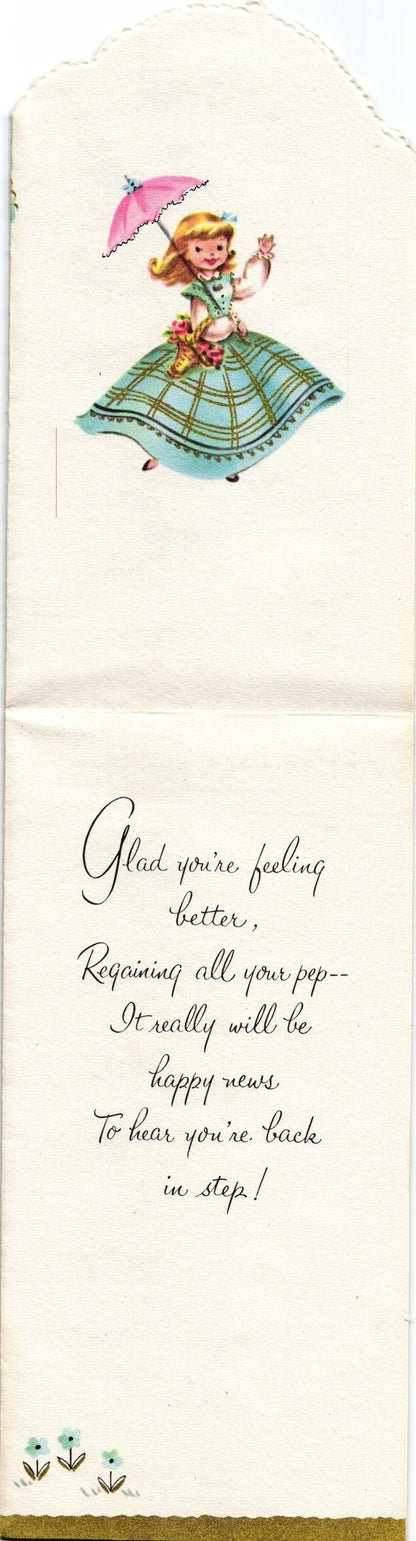 Glad you're feeling
better,
Regaining all your pep--
It really will be
happy news
To hear you're back
in step!